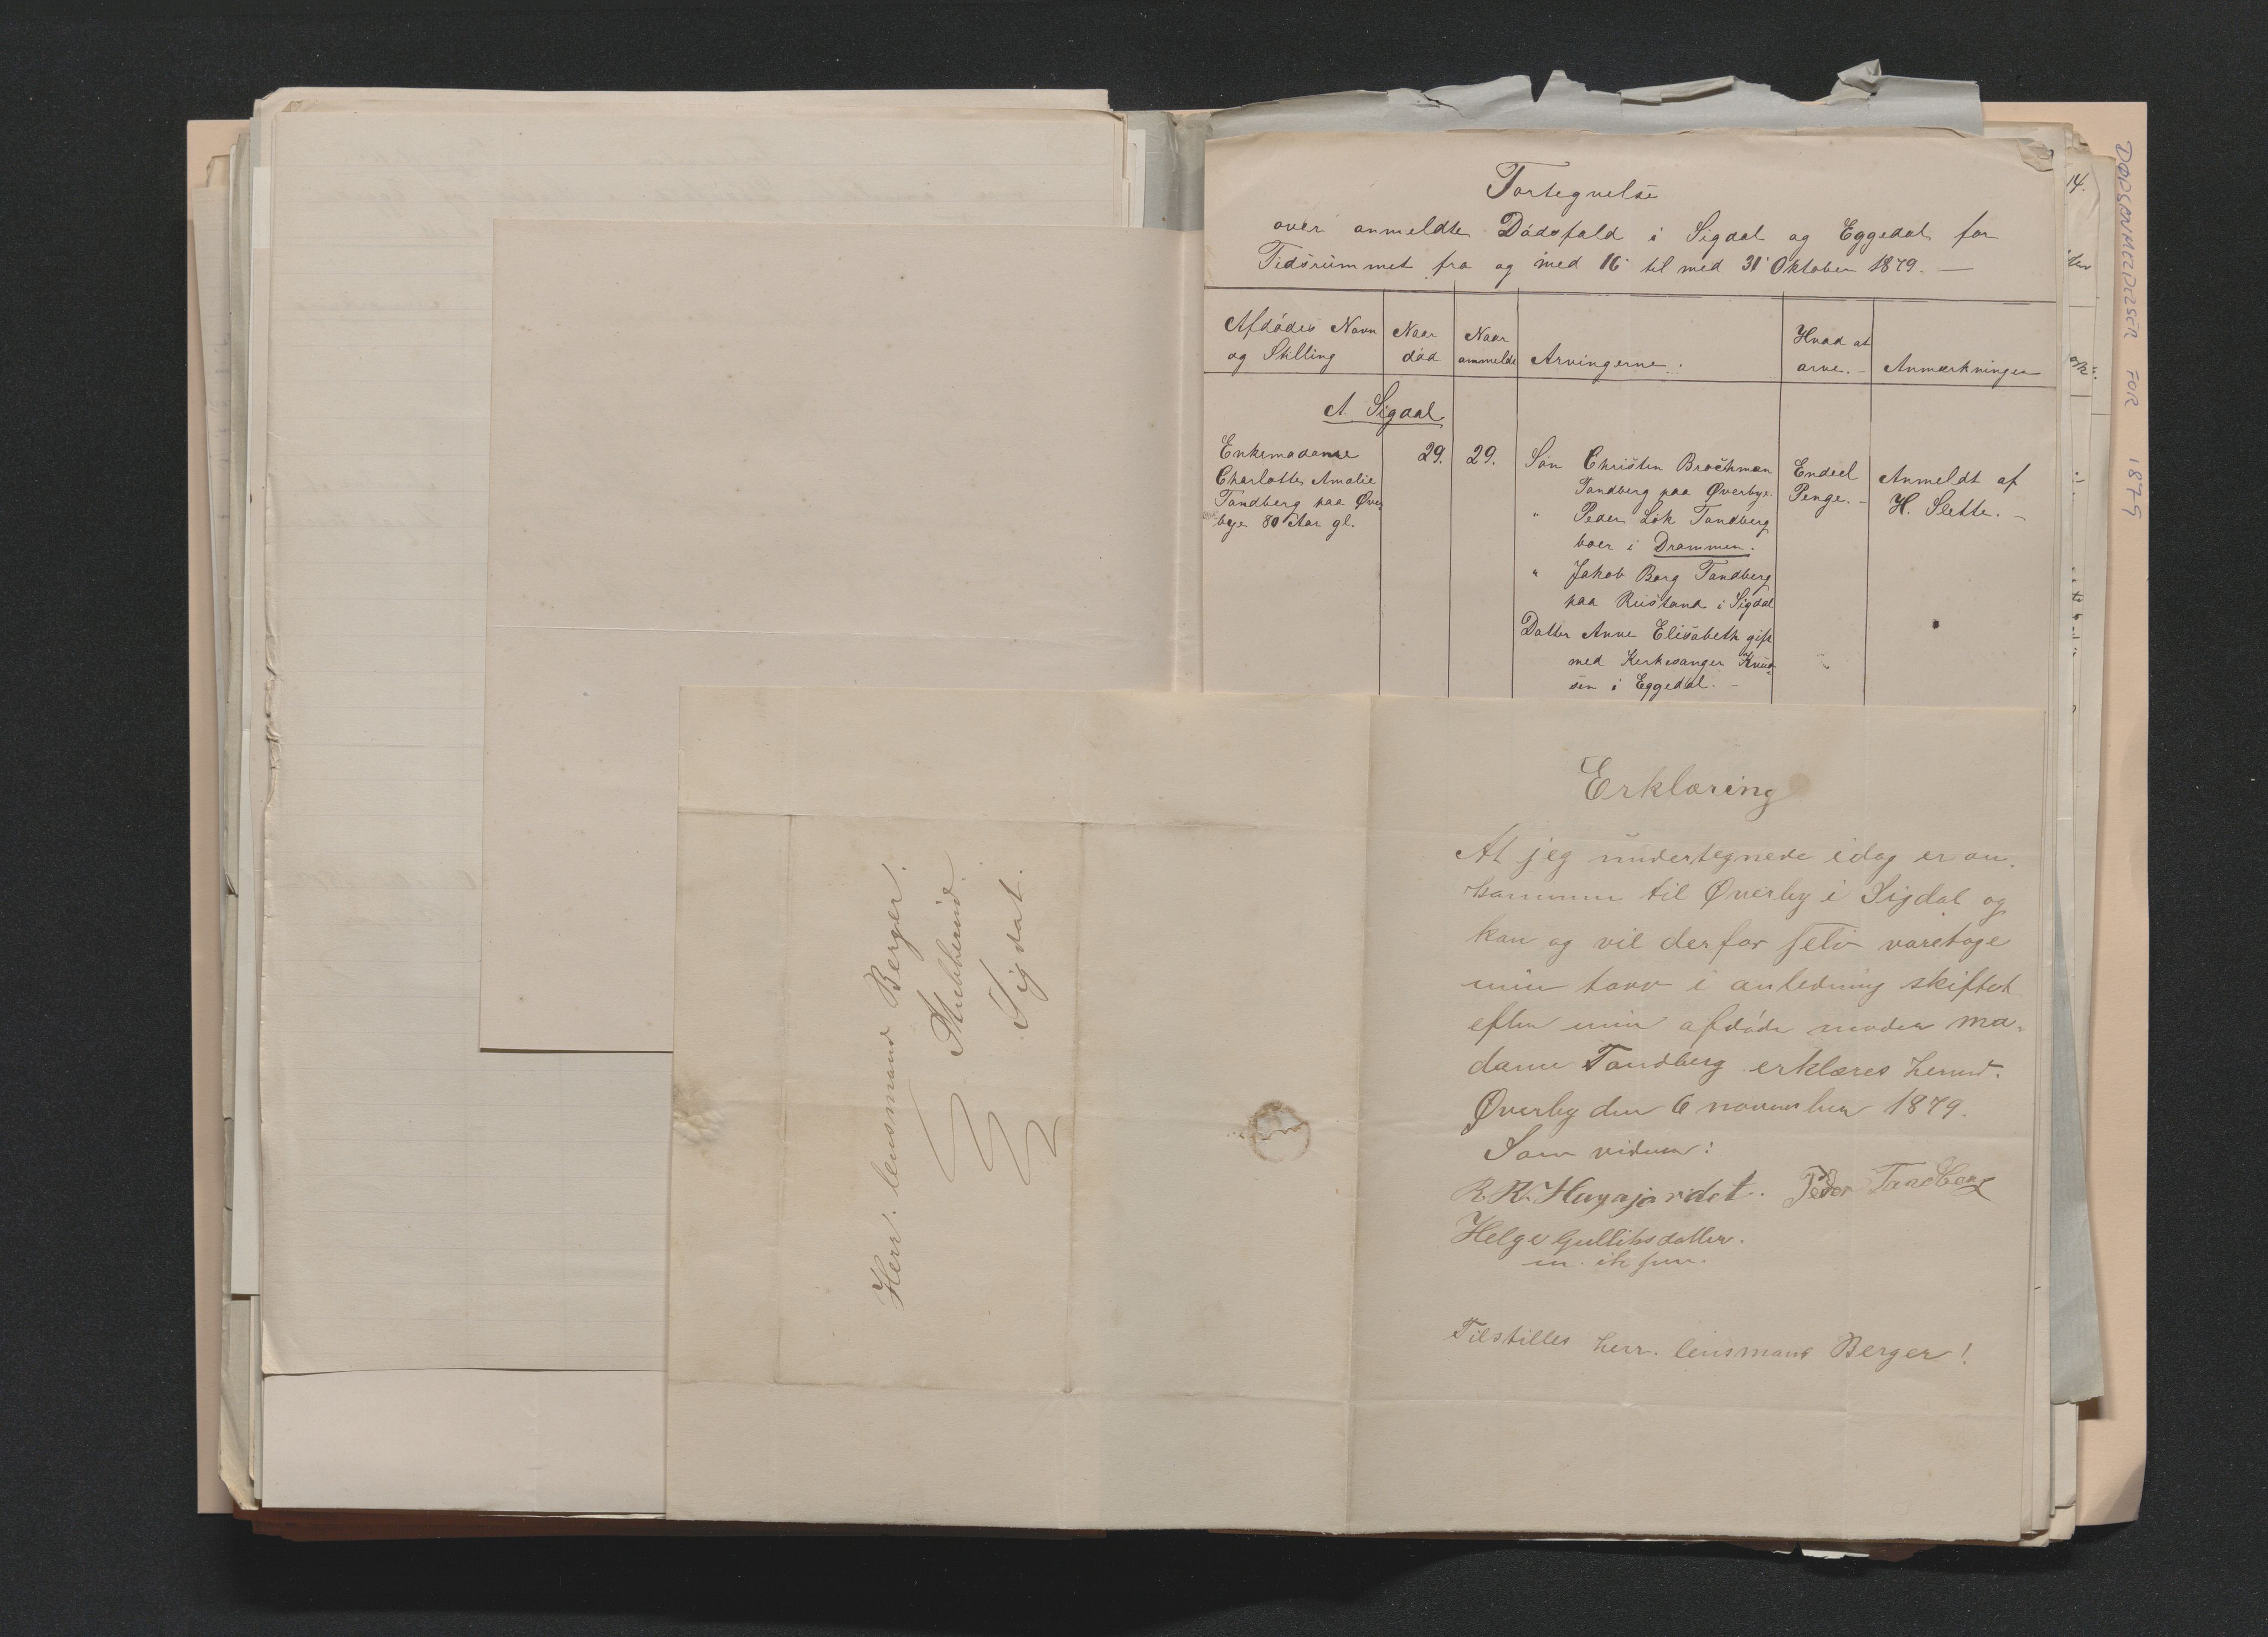 Fortegnelse
over anmeldte Dødsfald i Sigdal og Eggedal for
Tidsrummet fra og med 16 til med 31 Oktober 1879. —
Afdødes Navn og Stilling
Naar død
Naar anmeldt
Arvingerne.
Hvad at arve. -
Anmærkninger
A. Sigdal
Enkemadame
Charlotte Amalie
Tandberg paa Øver
bye 80 Aar gl.
29.
29.
Søn Christen Brochman
Tandberg paa Øverbye.
" Peder Lok Tandberg
boer i Drammen.
" Jakob Borg Tandberg
paa Rustand i Sigdal
Datter Anne Elisabeth gift
med Kirkesanger Knud-
sen i Eggedal. -
Endeel
Penge. -
Anmeldt af
H. Slette. -
Erklæring
At jeg undertegnede idag er an-
kommen til Øverby i Sigdal og
kan og vil derfor selv varetage
min tarv i anledning skiftet
efter min afdøde moder ma-
dame Tandberg erklæres herved.
Øverby den 6 november 1879.
Som vidner:
Peder Tandberg
Helge Gulliksdatter.
m. ih pen.
Tilstilles herr. lensmand Berger!
Herr. lensmand Berger.
Sigdal.
DØDSANMELDELSER FOR 1879
14.